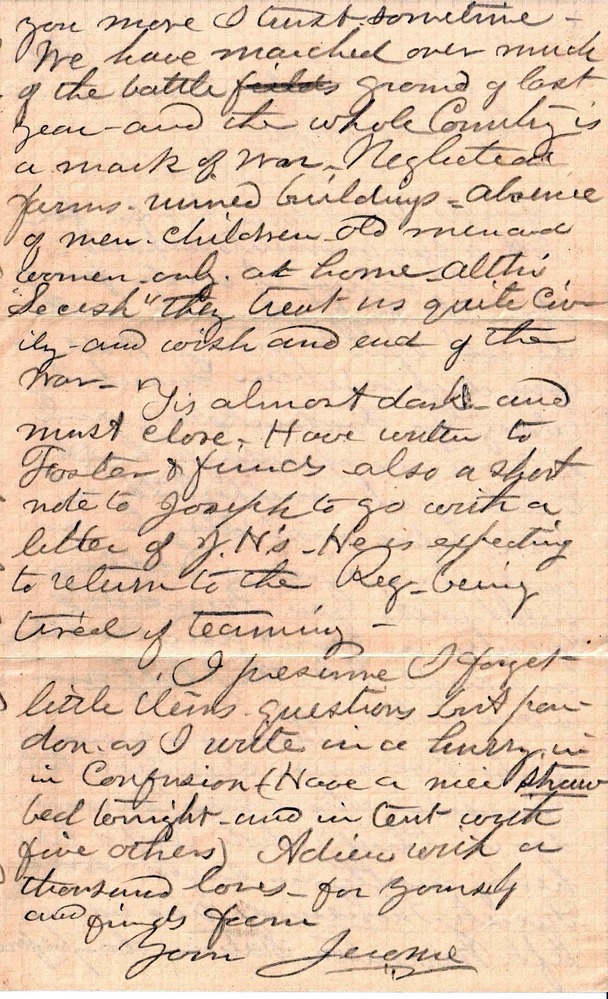 you more I trust sometime -
We have marched over much
of the battle fields ground of last
year - and the whole Country is
a mark of War - Neglected
farms - ruined buildings - absence
of men - children - old men and
women only - at home - altho'
"Secesh" they treat us quite Civ-
ily - and wish and end of the
War -
'Tis almost dark - and
must close. Have written to
Foster & friends also a short
note to Joseph to go with a
letter of J. N's - He is expecting
to return to the Reg - being
tired of teaming -
I presume I forget
little items questions but par-
don - as I write in a hurry, in
in Confusion (Have a nice straw
bed tonight - and in tent with
five others) Adieu with a
thousand loves - for yourself
and friends from
Your Jerome